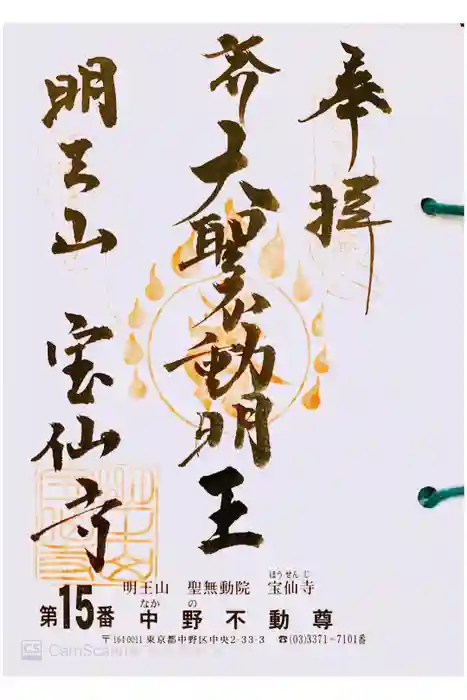 奉拝
大聖不動明王
明王山 宝仙寺
明王山 聖無動院 宝仙寺
ほうせんじ
第15番 中野不動尊
なかの
〒164-0011 東京都中野区中央2-33-3 ☎(03)3371-7101番
CS CamScanner